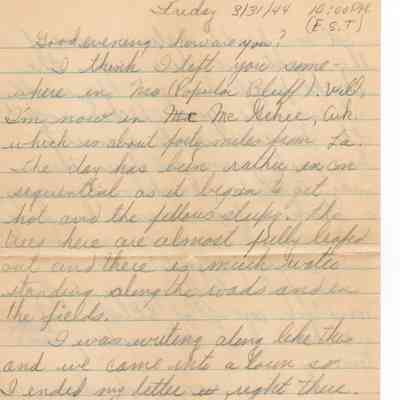 Friday 3/31/44 10:00 P.M.
(E.S.T)
Good evening, how are you?
I think I left you some-
where in Mo (Popular Bluff). Well,
I'm now in Mc Gehee, Ark.
which is about forty miles from La.
The day has been rather in con
sequential as it began to get
hot and the fellows sleepy. The
trees here are almost fully leafed
out and there is much water
standing along the roads and in
the fields.
I was writing along like this
and we came into a town so
I ended my letter right there.